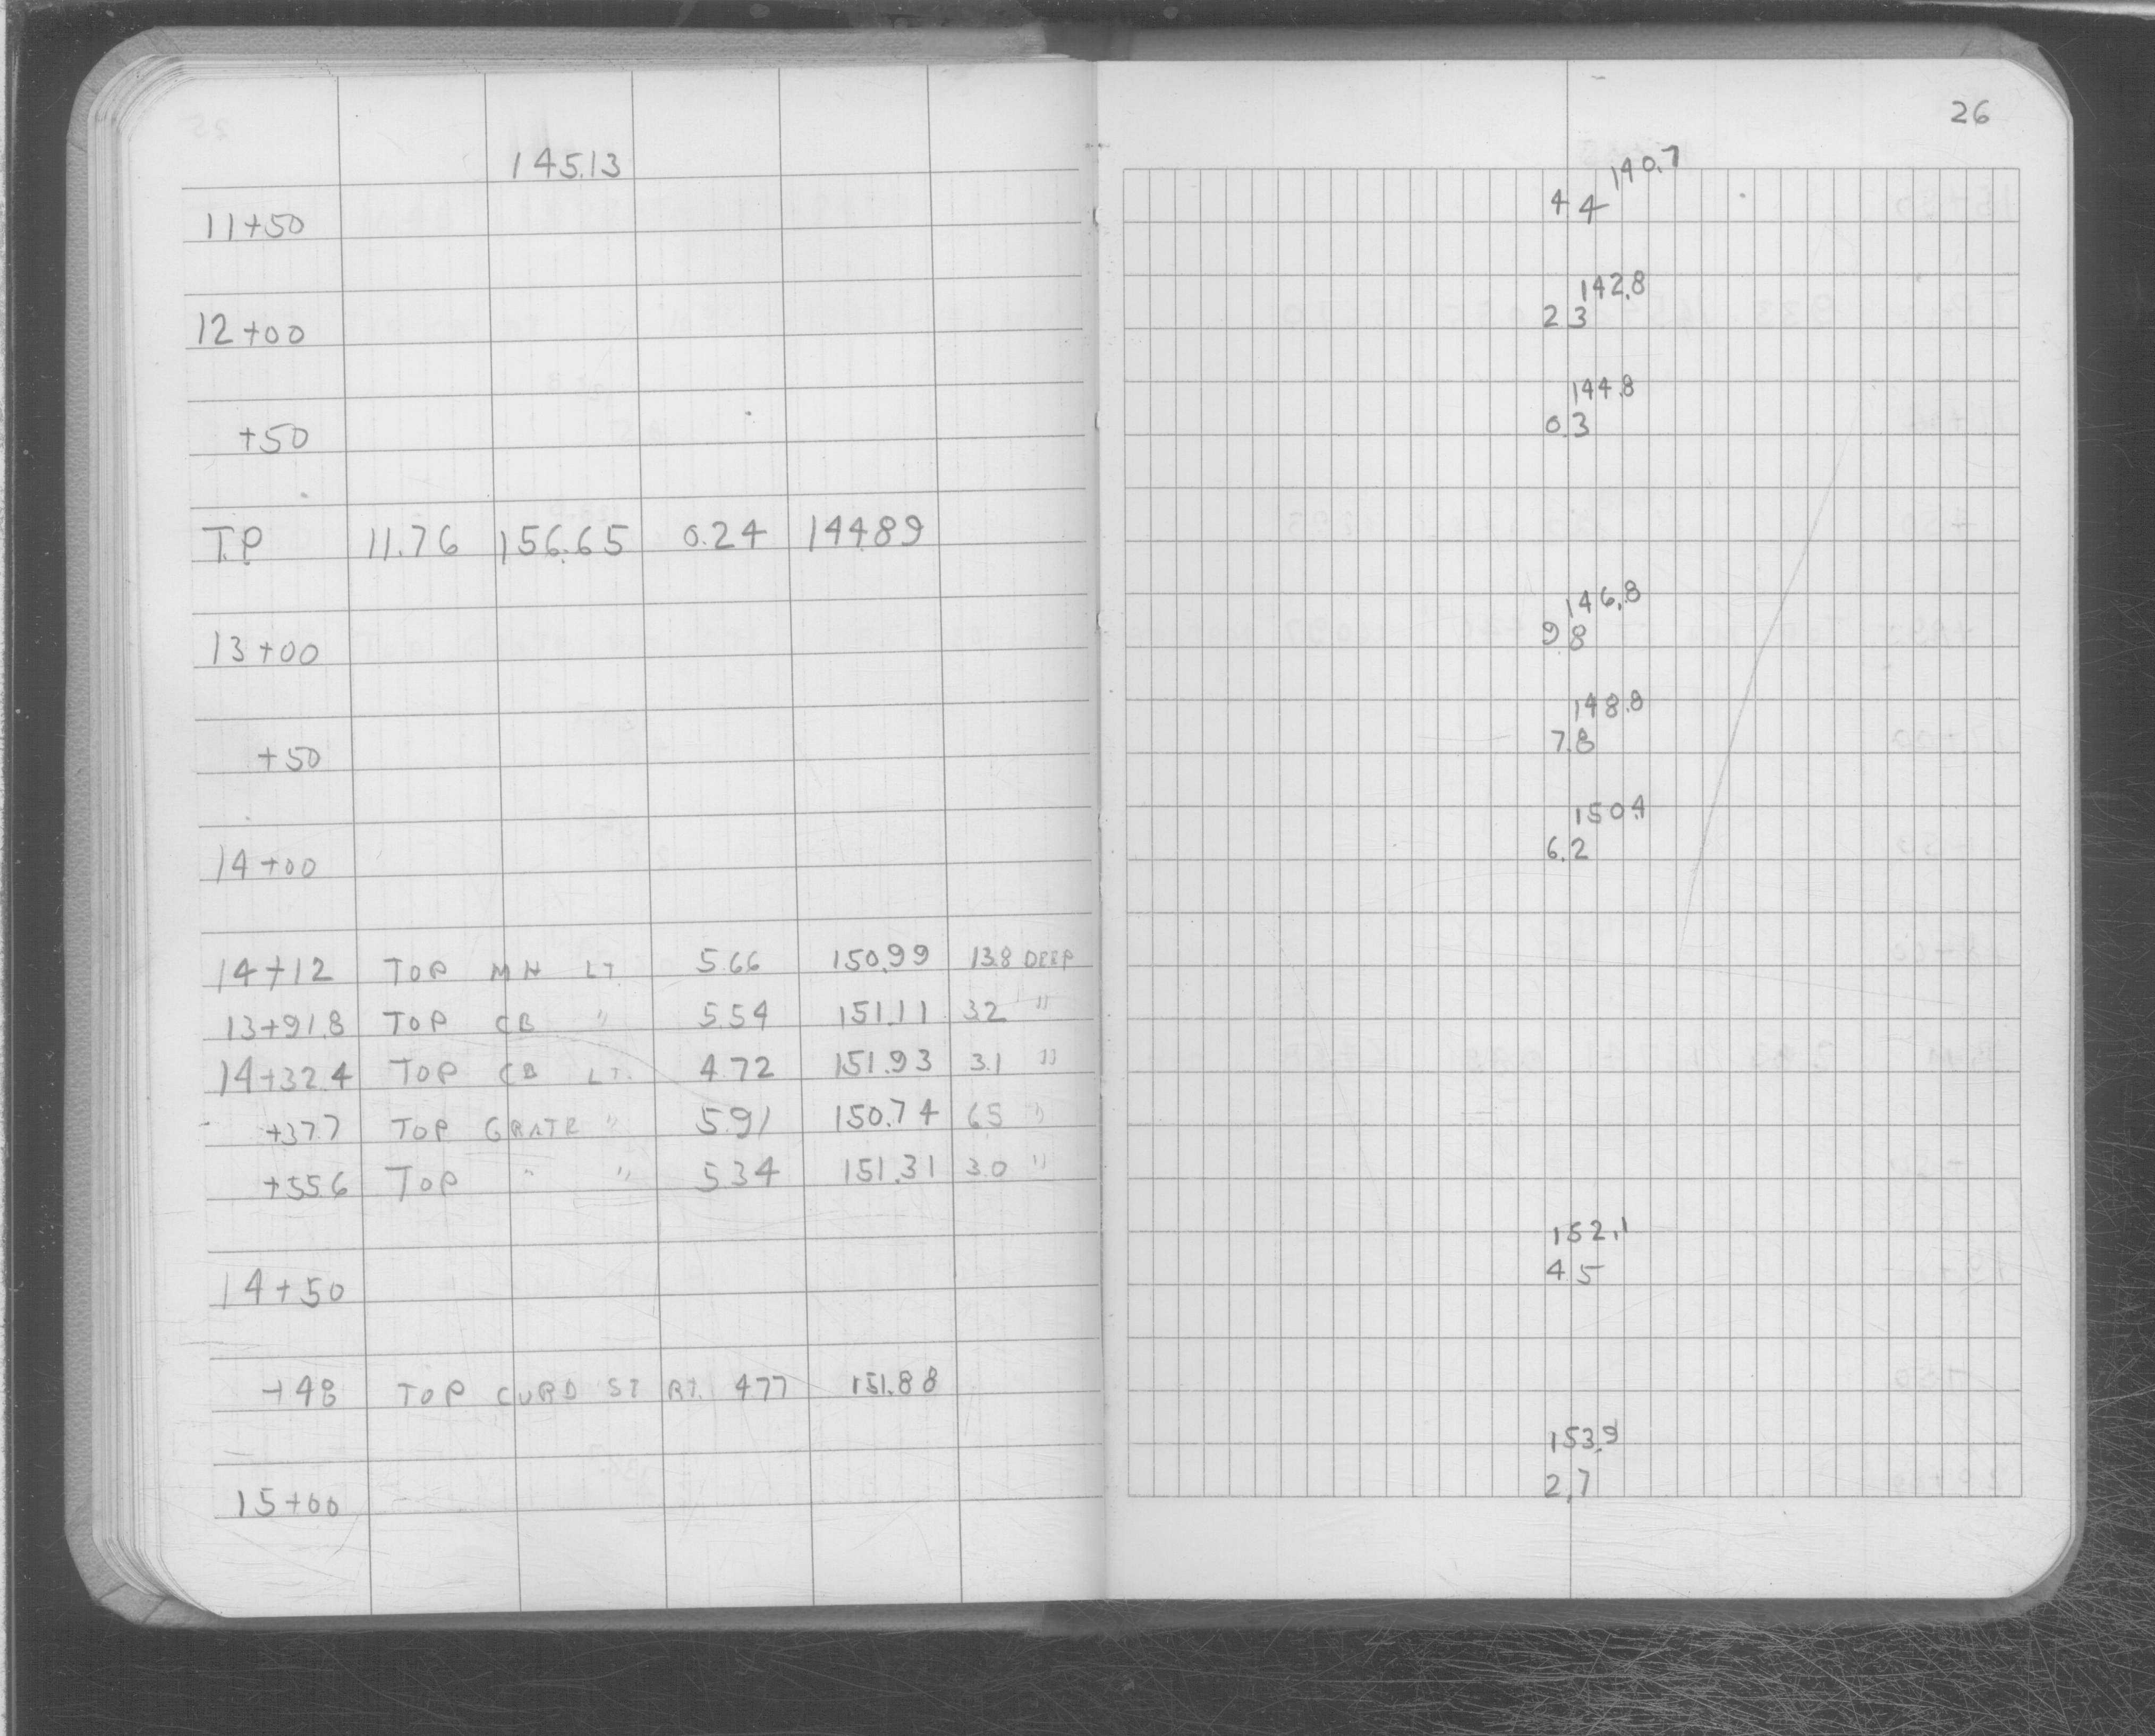 145.13
11+50
12+00
+50
T.P 11.76 156.65 0.24 144.89
13+00
+50
14+00
14+12 TOP MH LT. 5.66 150.99 13.8 DEEP
13+91.8 TOP CB " 5.54 151.11 3.2 "
14+32.4 TOP CB LT. 4.72 151.93 3.1 "
+37.7 TOP GRATE " 5.91 150.74 6.5 "
+55.6 TOP " " 5.34 151.31 3.0 "
14+50
+48 TOP CURB ST RT. 4.77 151.88
15+00
26
140.7
4.4
142.8
2.3
144.8
0.3
146.8
9.8
148.8
7.8
150.4
6.2
152.1
4.5
153.9
2.7